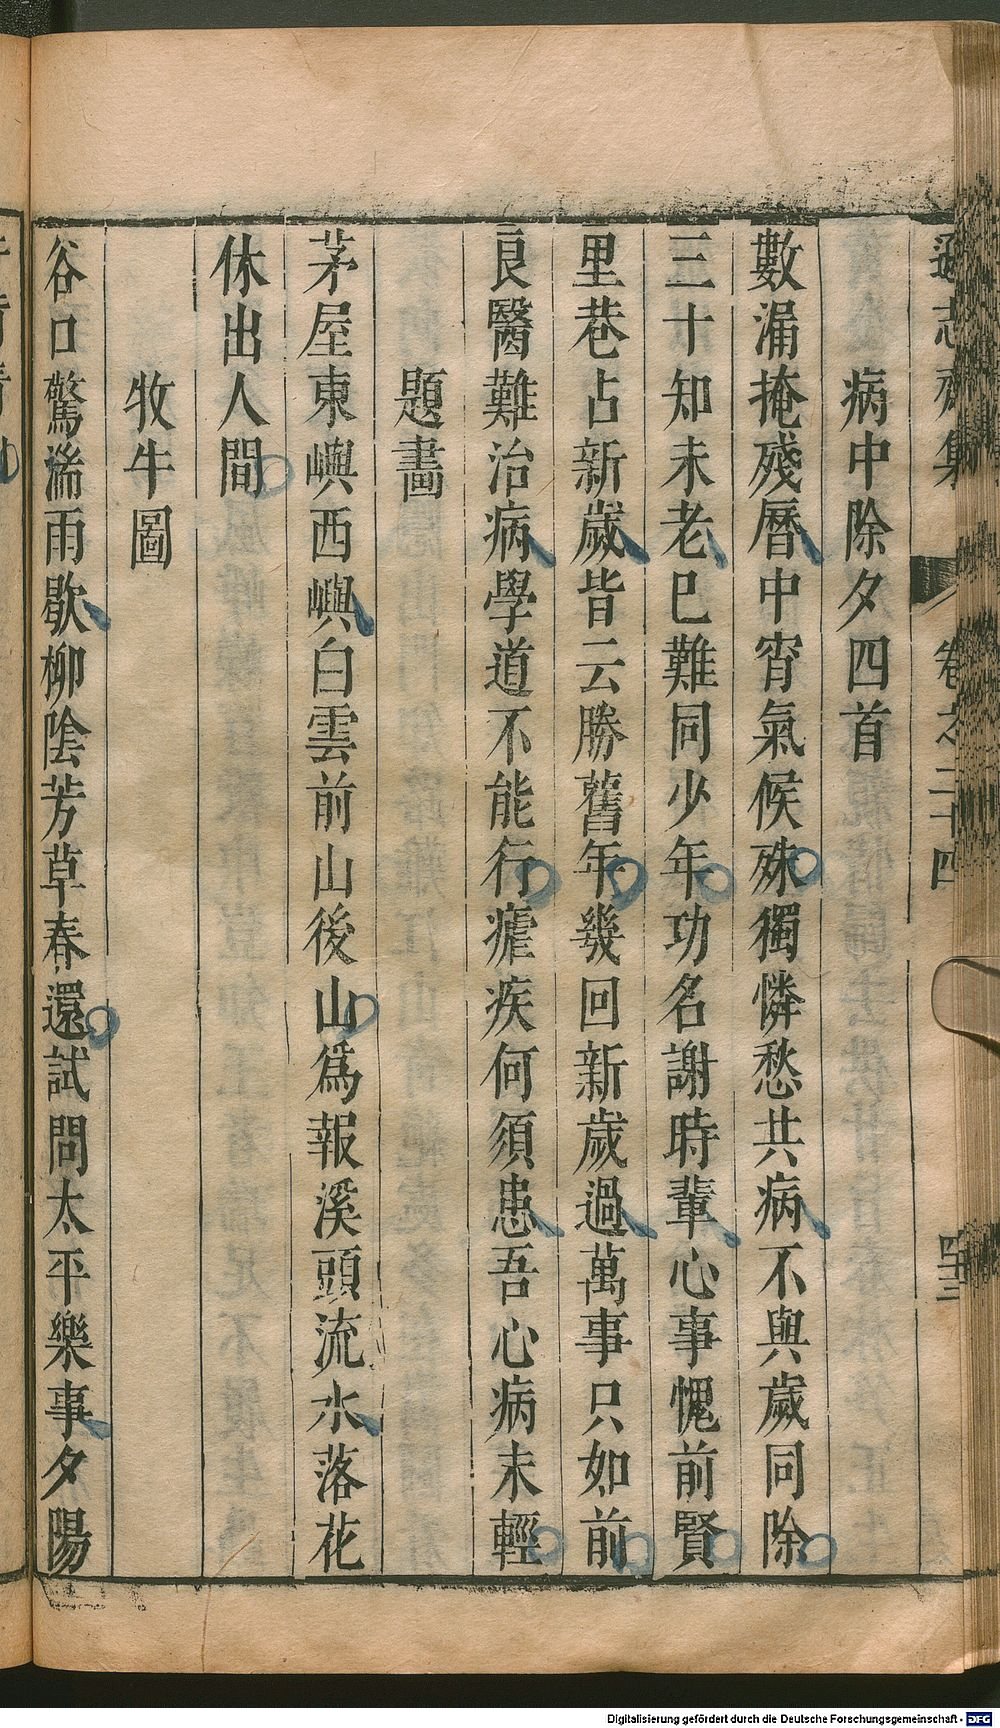 遜志齋集 卷之二十四 四十三
病中除夕四首
數漏掩殘曆中宵氣候殊獨憐愁共病不與歲同除
三十知未老巳難同少年功名謝時輩心事愧前賢
里巷占新歲皆云勝舊年幾回新歲過萬事只如前
良醫難治病學道不能行瘧疾何須患吾心病未輕
題畫
茅屋東嶼西嶼白雲前山後山爲報溪頭流水落花
休出人間
牧牛圖
谷口驚湍雨歇柳陰芳草春還試問太平樂事夕陽
Digitalisierung gefördert durch die Deutsche Forschungsgemeinschaft - DFG